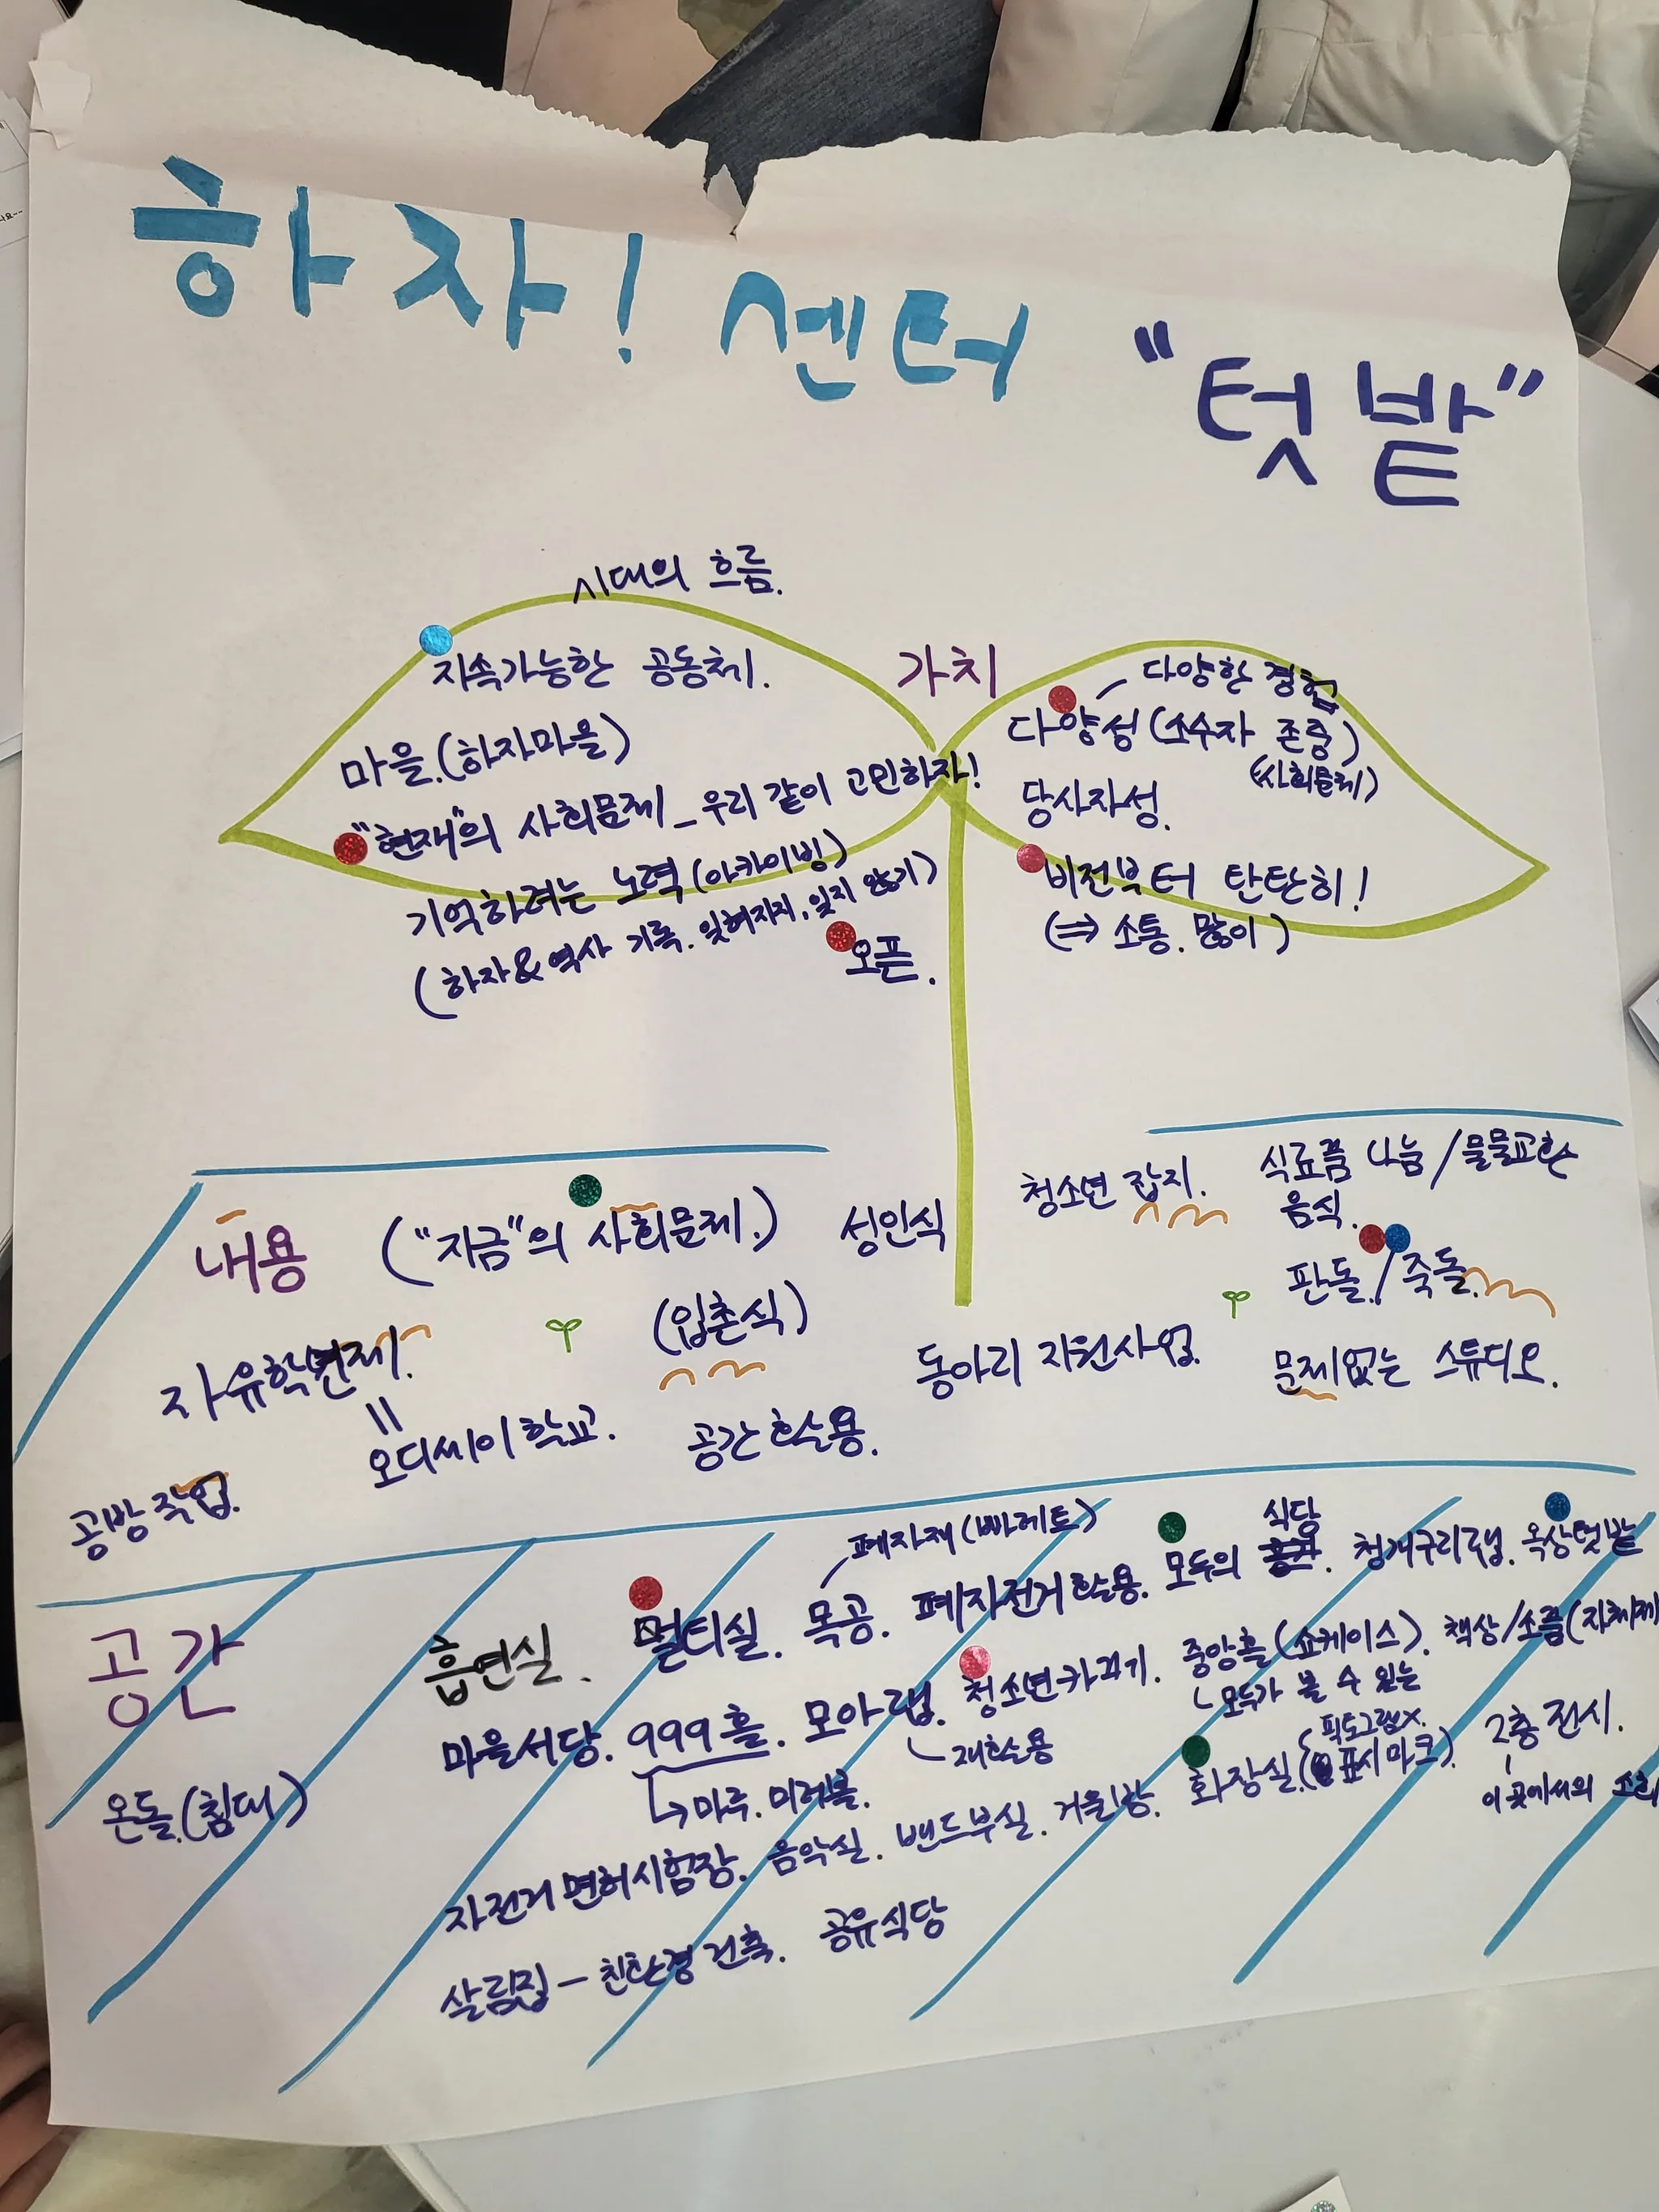 하자! 센터
"텃밭"
시대의 흐름.
지속가능한 공동체.
마을.(하자마을)
"현재"의 사회문제_우리 같이 고민하자!
기억하려는 노력(아카이빙)
(하자&역사 기록. 잊혀지지, 잊지 않기)
오픈.
가치
다양한 경험
다양성(소수자 존중)
(사회문제)
당사자성.
비전부터 탄탄히!
(⇒ 소통. 많이)
내용
("지금"의 사회문제.)
성인식
(입촌식)
자유학년제.
=
오디세이학교.
공간활용.
공방작업.
청소년 잡지.
식료품 나눔/물물교환
음식.
판돌./죽돌.
동아리 지원사업.
문제없는 스튜디오.
공간
온돌.(침대)
폐자재(빠레트)
식당
흡연실. 멀티실. 목공. 폐자전거활용. 모두의. 청개구리랩. 옥상텃밭
마을서당. 999홀. 모아랩. 청소년카페기. 중앙홀(쇼케이스). 책상/소품(자체제
재활용
모두가 볼 수 있는
→마루. 미러볼.
픽토그램x.
자전거면허시험장. 음악실. 밴드부실. 거울방. 화장실.(표시마크). 2층 전시.
이곳에서의
살림집 - 친환경건축. 공유식당